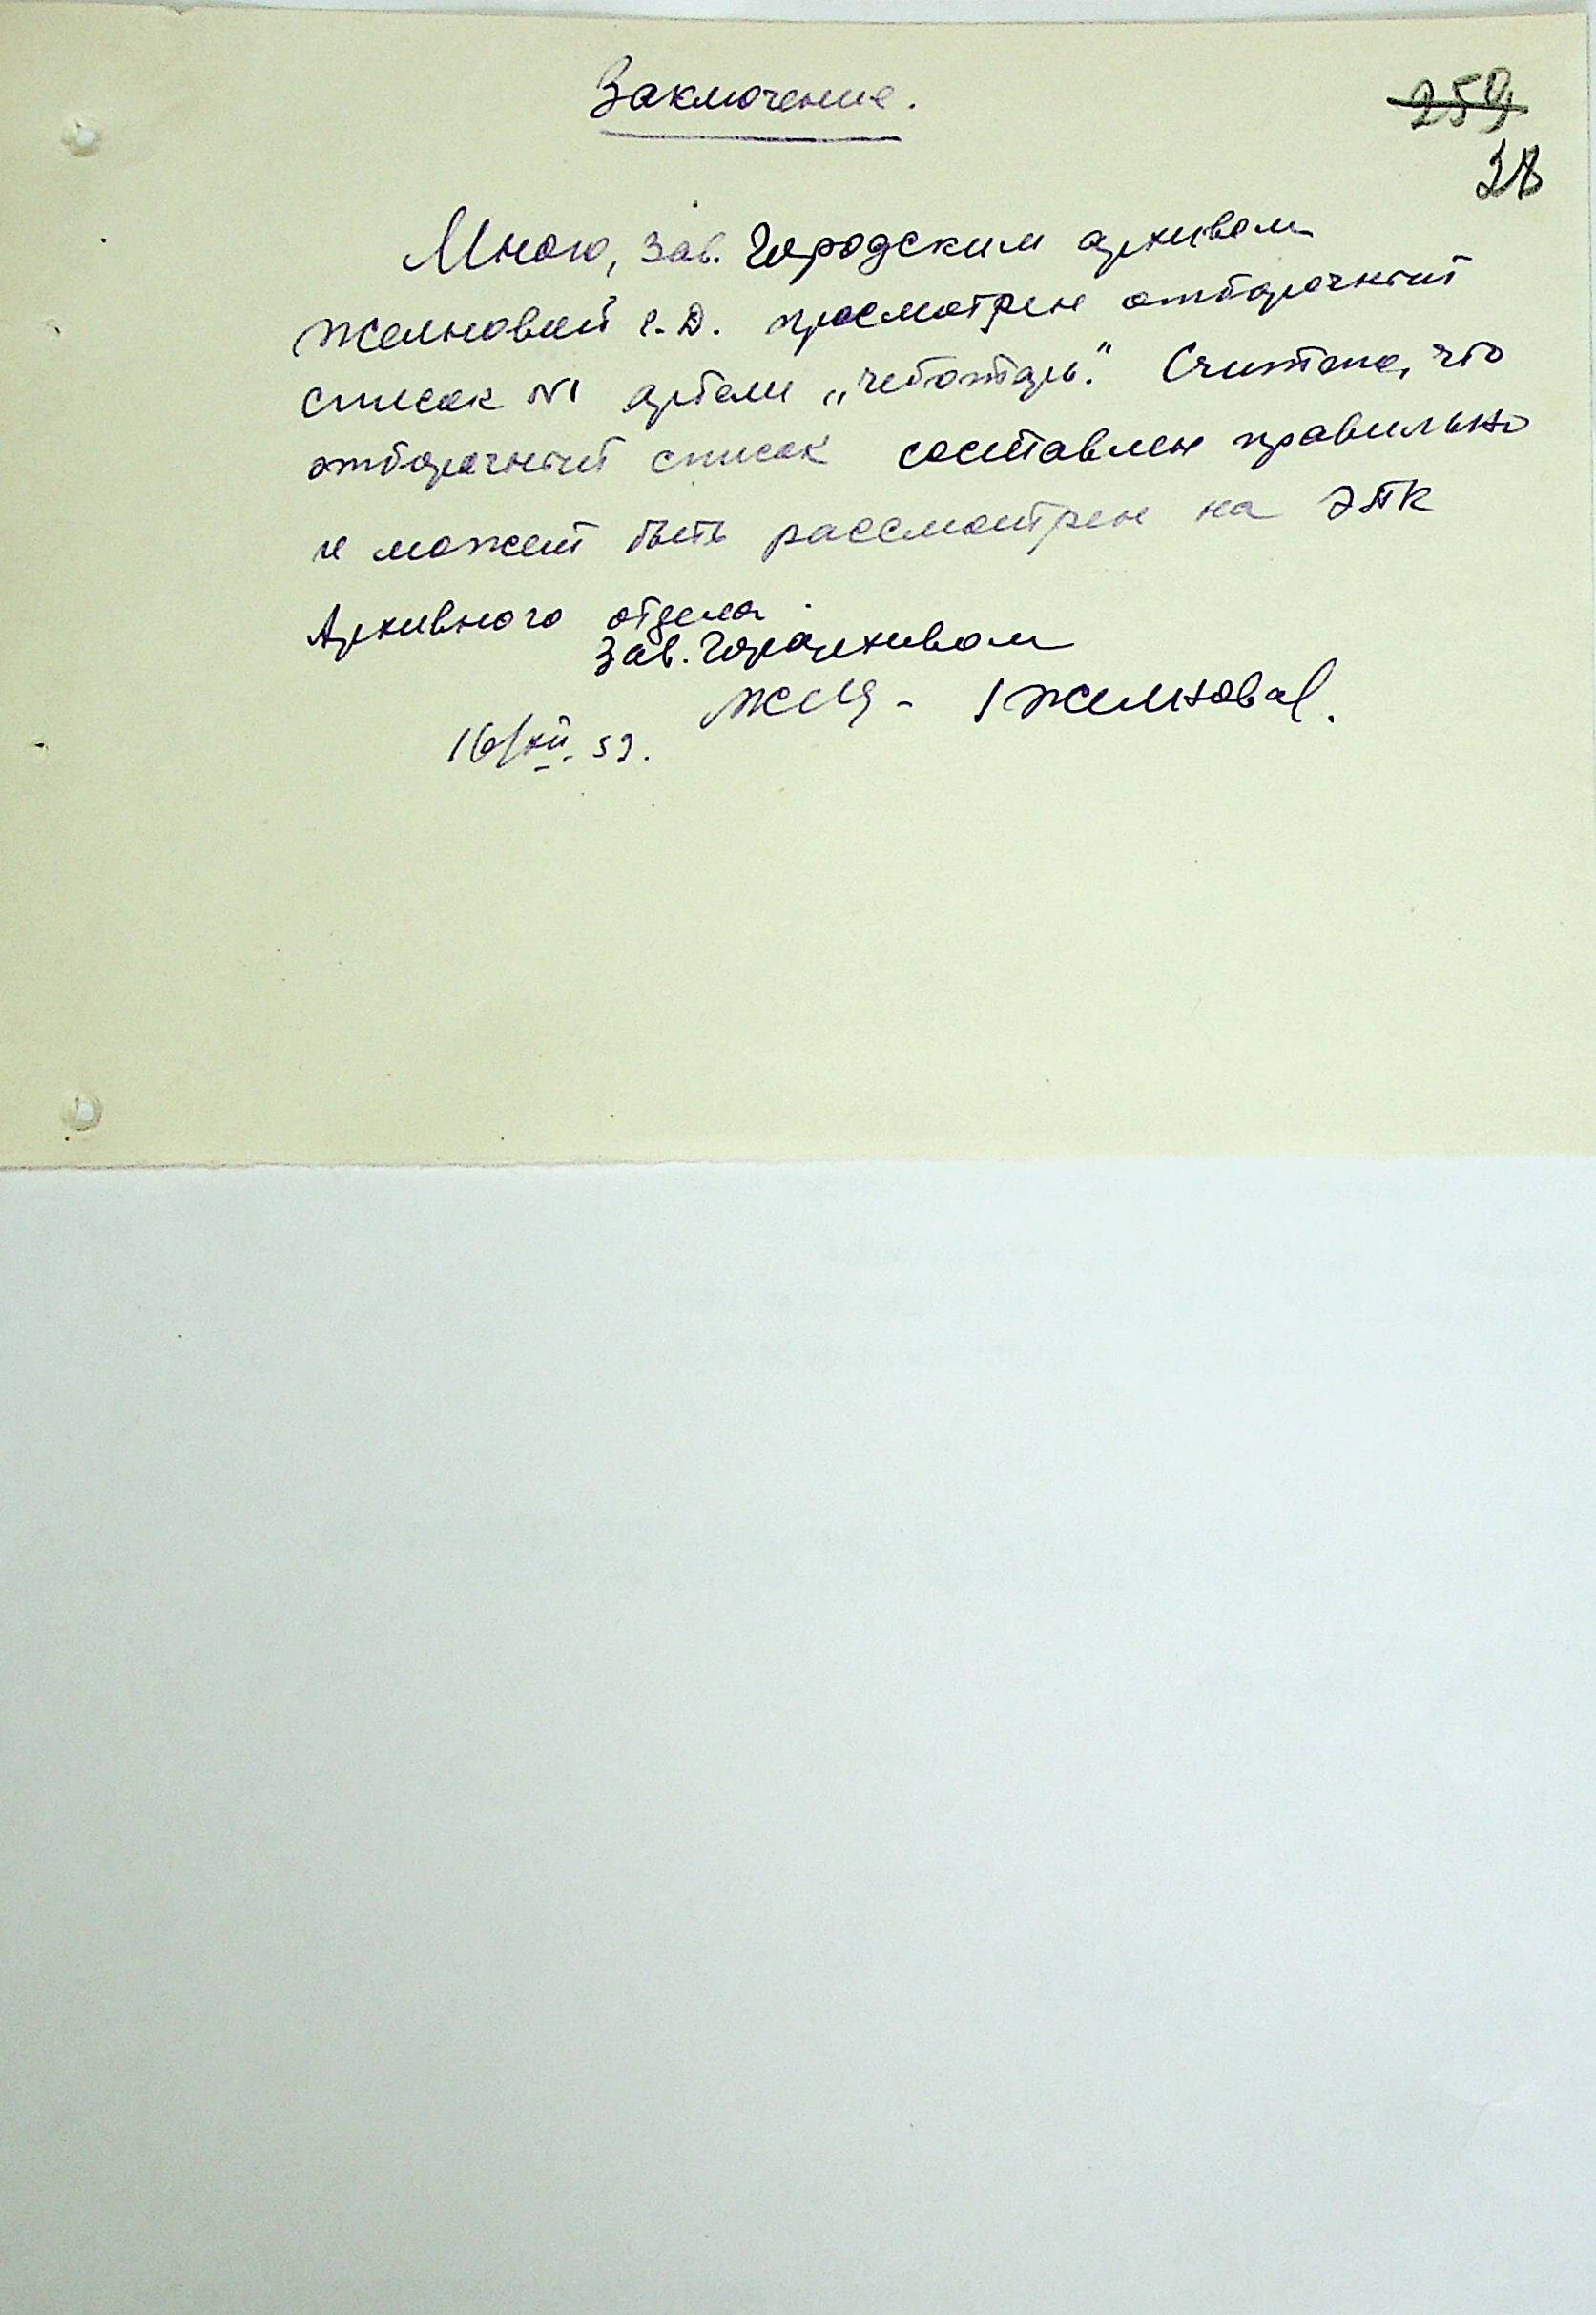 Заключение.
259
38
Мною, зав. Городским архивом
Желновой Г.Д. просмотрен отборочный
список №1 артели „Чеботарь." Считаю, что
отборочный список составлен правильно
и может быть рассмотрен на ЭПК
Архивного отдела.
Зав. Горархивом
/Желнова/.
16/XII. 59.